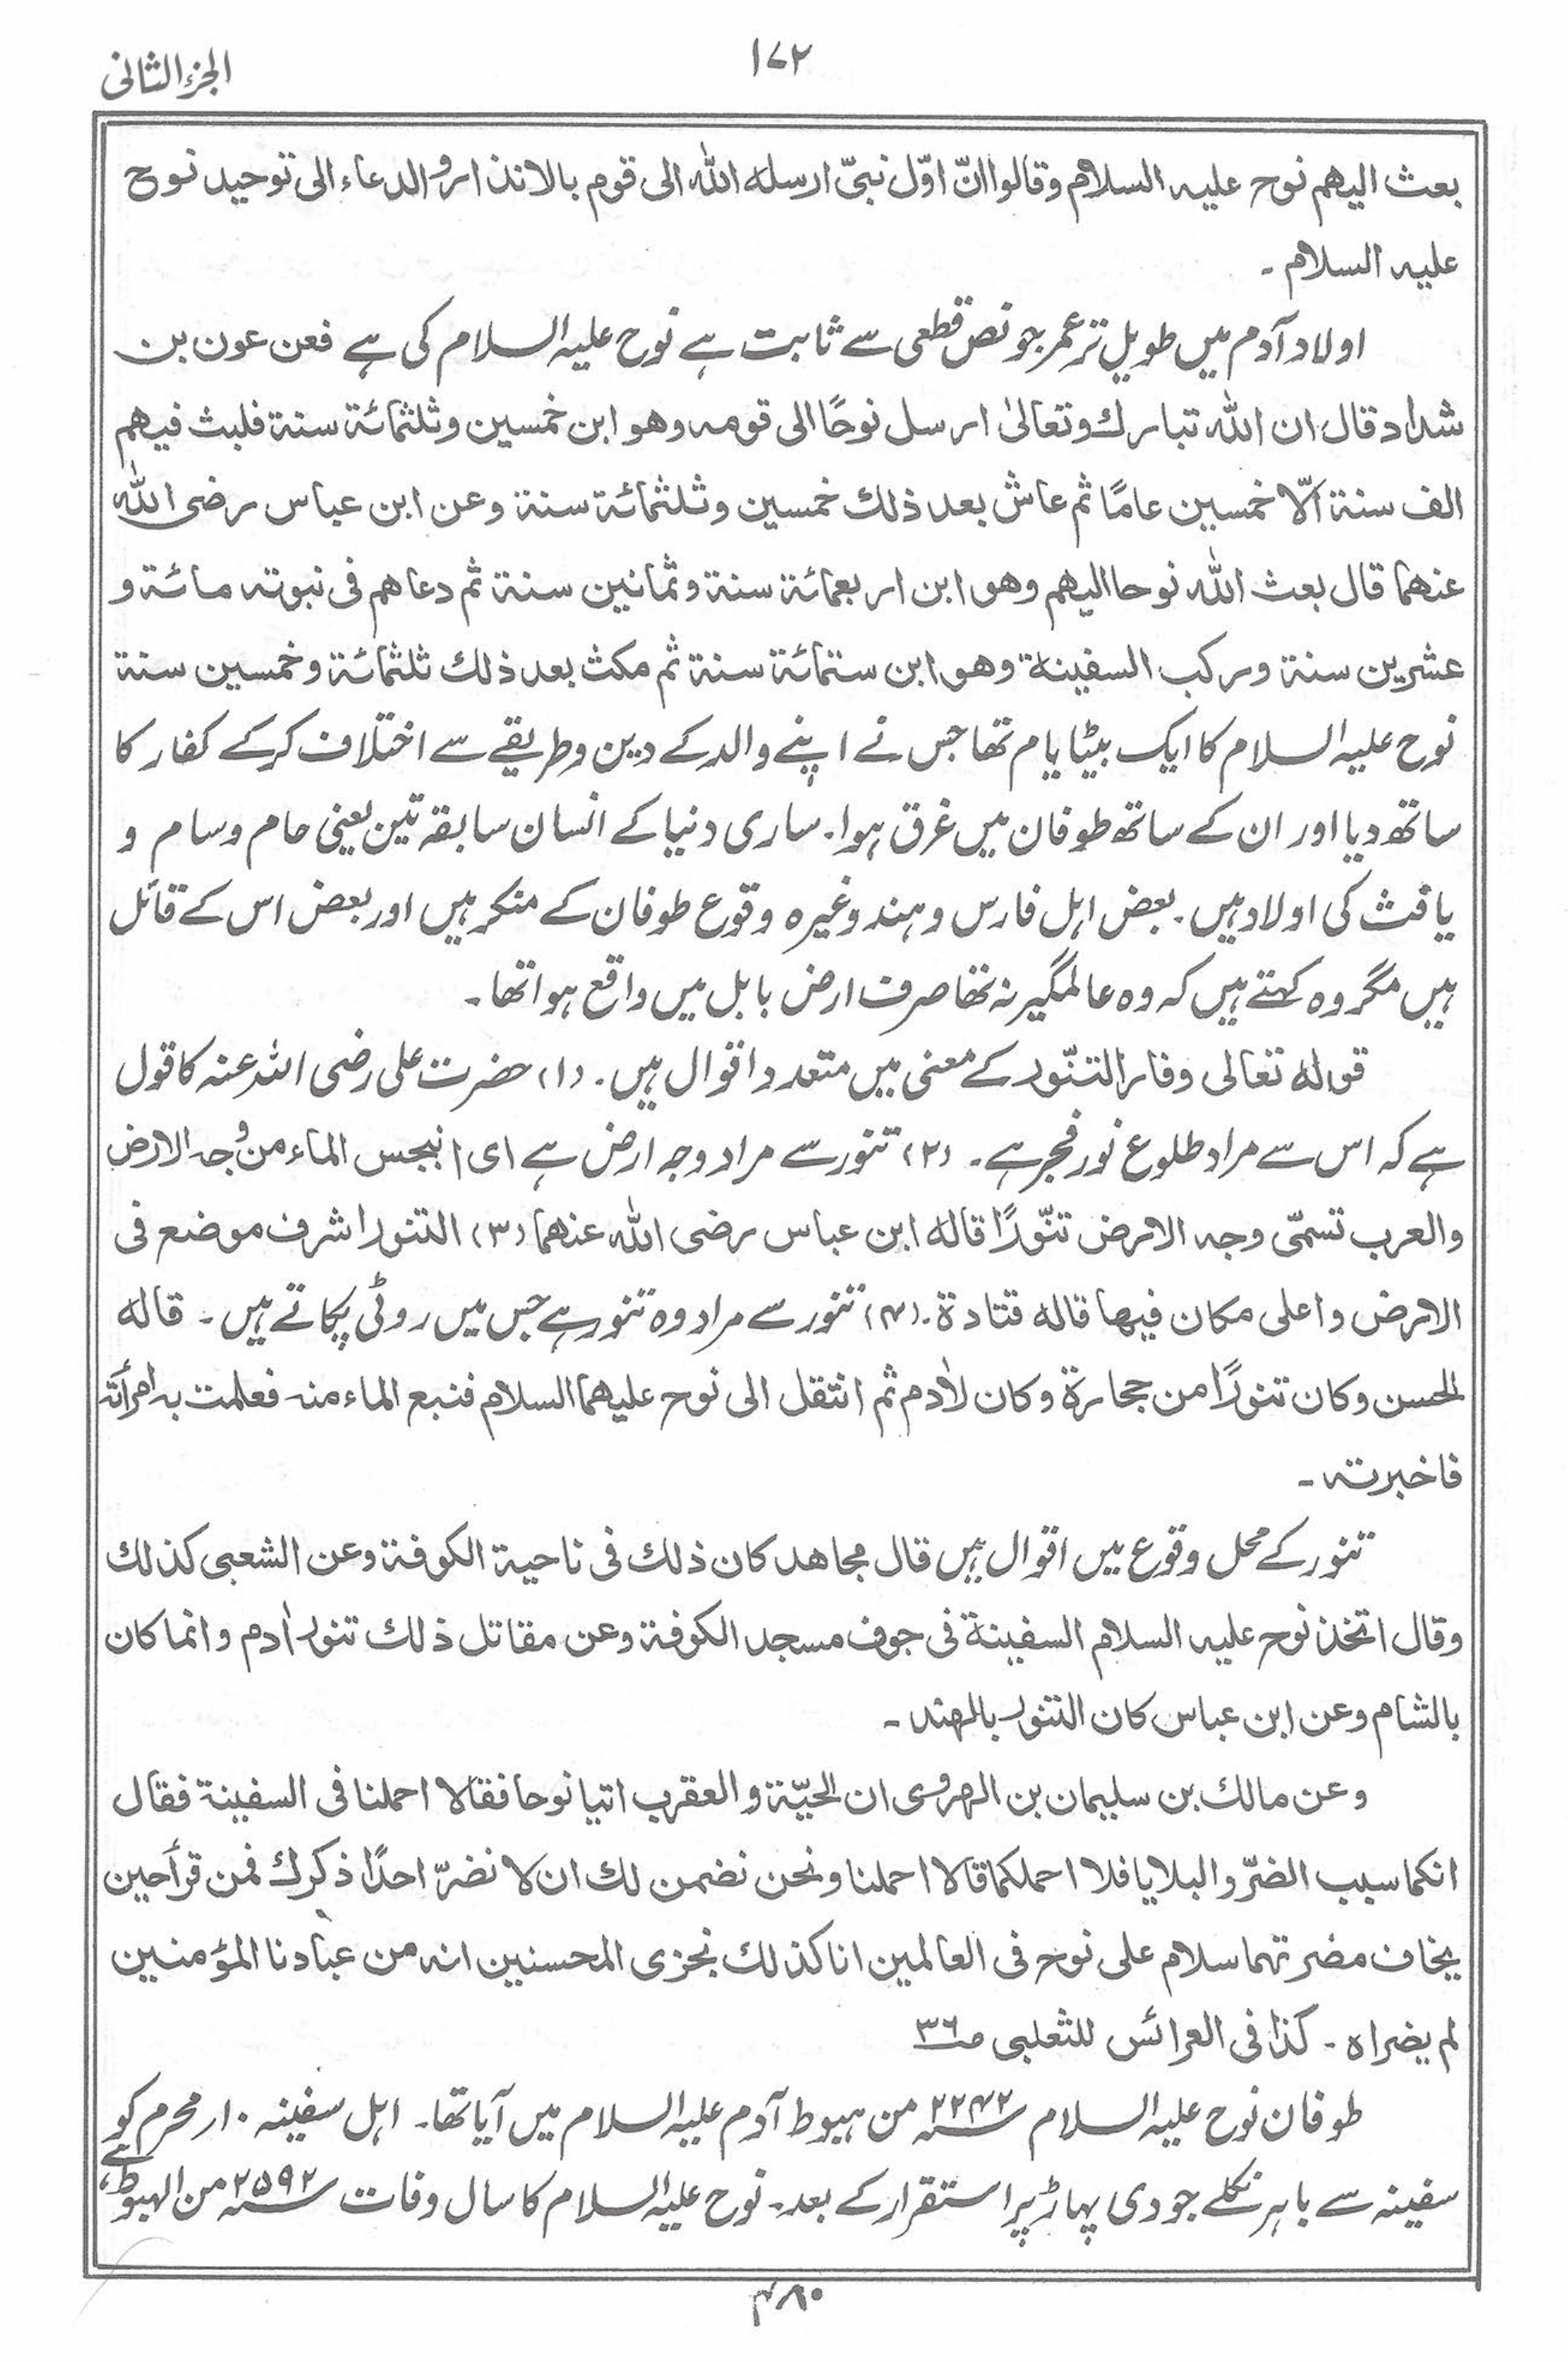 ۱۷۲
الجزء الثانی
بعث الیهم نوح علیہ السلام وقالوا انّ اوّل نبیّ ارسله اللہ الی قوم بالانذار والدعاء الی توحید نوح
علیہ السلام ۔
اولاد آدم میں طویل تر عمر جو نص قطعی سے ثابت ہے نوح علیہ السلام کی ہے فعن عون بن
شداد قال ان اللہ تبارك وتعالىٰ ارسل نوحًا الی قومہ وھو ابن خمسین وثلثمائۃ سنۃ فلبث فیھم
الف سنۃ الّا خمسین عامًا ثم عاش بعد ذلك خمسین وثلثمائۃ سنۃ وعن ابن عباس رضی اللہ
عنھما قال بعث اللہ نوحا الیھم وھو ابن اربعمائۃ سنۃ وثمانین سنۃ ثم دعاھم فی نبوتہ مائۃ و
عشرین سنۃ ورکب السفینۃ وھو ابن ستمائۃ سنۃ ثم مکث بعد ذلك ثلثمائۃ وخمسین سنۃ
نوح علیہ السلام کا ایک بیٹا یام تھا جس نے اپنے والد کے دین وطریقے سے اختلاف کرکے کفار کا
ساتھ دیا اور ان کے ساتھ طوفان میں غرق ہوا۔ ساری دنیا کے انسان سابقہ تین یعنی حام وسام و
یافث کی اولاد ہیں۔ بعض اہل فارس وہند وغیرہ وقوع طوفان کے منکر ہیں اور بعض اس کے قائل
ہیں مگر وہ کہتے ہیں کہ وہ عالمگیر نہ تھا صرف ارض بابل میں واقع ہوا تھا ۔
قوله تعالی وفار التنّور کے معنی میں متعدد اقوال ہیں۔ (۱) حضرت علی رضی اللہ عنہ کا قول
ہے کہ اس سے مراد طلوع نور فجر ہے۔ (۲) تنور سے مراد وجہ ارض ہے ای انبجس الماء من وجہ الارض
والعرب تسمّی وجہ الارض تنّورًا قاله ابن عباس رضی اللہ عنھما (۳) التنور اشرف موضع فی
الارض واعلی مکان فیھا قاله قتادۃ۔ (۴) تنور سے مراد وہ تنور ہے جس میں روٹی پکاتے ہیں ۔ قاله
الحسن وکان تنورًا من حجارۃ وکان لاٰدم ثم انتقل الی نوح علیھما السلام فنبع الماء منہ فعلمت بہ امرأتہ
فاخبرتہ ۔
تنور کے محل وقوع میں اقوال ہیں قال مجاھد کان ذلك فی ناحیۃ الکوفۃ وعن الشعبی کذلك
وقال اتخذ نوح علیہ السلام السفینۃ فی جوف مسجد الکوفۃ وعن مقاتل ذلك تنور اٰدم وانما کان
بالشام وعن ابن عباس کان التنور بالھند ۔
وعن مالك بن سلیمان بن الھروی ان الحیّۃ والعقرب اتیا نوحا فقالا احملنا فی السفینۃ فقال
انکما سبب الضرّ والبلایا فلا احملکما قالا احملنا ونحن نضمن لك ان لا نضرّ احدًا ذکرك فمن قرأ حین
یخاف مضرتھما سلام علی نوح فی العالمین انا کذلك نجزی المحسنین انہ من عبادنا المؤمنین
لم یضراہ ۔ کذا فی العرائس للثعلبی صـ۳۶
طوفان نوح علیہ السلام سنہ ۲۲۴۲ من ہبوط آدم علیہ السلام میں آیا تھا۔ اہل سفینہ ۱۰؍ محرم کو
سفینہ سے باہر نکلے جودی پہاڑ پر استقرار کے بعد۔ نوح علیہ السلام کا سال وفات سنہ ۲۵۹۲ من الہبوط ہے،